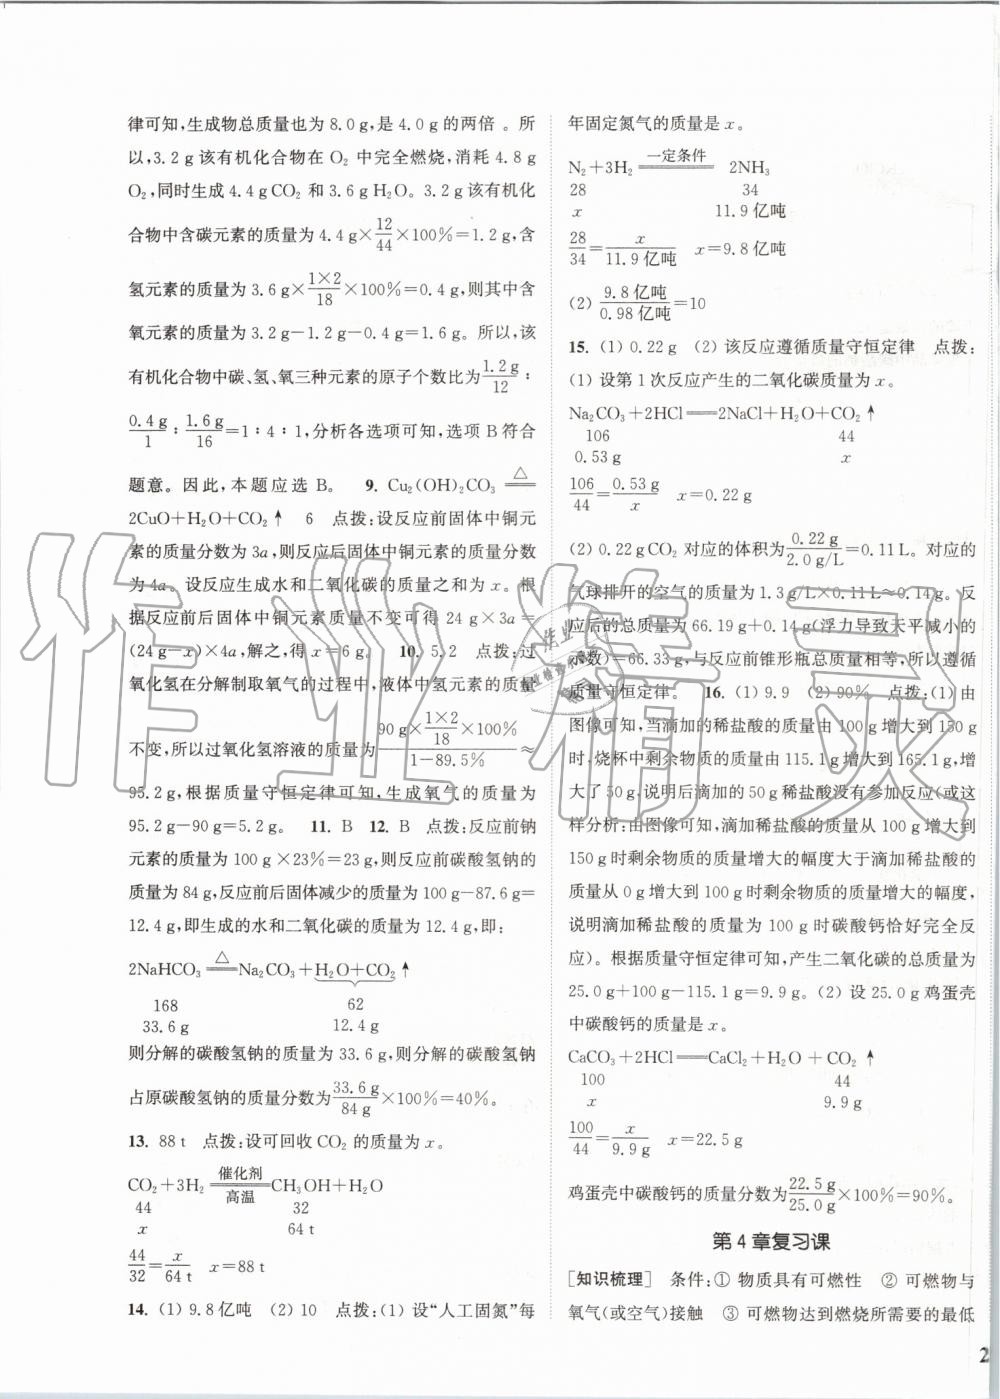 律可知,生成物总质量也为8.0 g,是4.0 g的两倍 。所
以,3.2 g该有机化合物在O₂中完全燃烧,消耗4.8 g
O₂,同时生成4.4 g CO₂和3.6 g H₂O。3.2 g该有机化
合物中含碳元素的质量为4.4 g×12/44×100%=1.2 g,含
氢元素的质量为3.6 g×1×2/18×100%=0.4 g,则其中含
氧元素的质量为3.2 g-1.2 g-0.4 g=1.6 g。所以,该
有机化合物中碳、氢、氧三种元素的原子个数比为1.2 g/12∶
0.4 g/1∶1.6 g/16=1∶4∶1,分析各选项可知,选项B符合
题意。因此,本题应选B。 9. Cu₂(OH)₂CO₃ =△=
2CuO+H₂O+CO₂↑ 6 点拨:设反应前固体中铜元
素的质量分数为3a,则反应后固体中铜元素的质量分数
为4a。设反应生成水和二氧化碳的质量之和为x。根
据反应前后固体中铜元素质量不变可得24 g×3a=
(24 g-x)×4a,解之,得x=6 g。 10. 5.2 点拨:过
氧化氢在分解制取氧气的过程中,液体中氢元素的质量
不变,所以过氧化氢溶液的质量为(90 g×1×2/18×100%)/(1-89.5%)≈
95.2 g,根据质量守恒定律可知,生成氧气的质量为
95.2 g-90 g=5.2 g。 11. B 12. B 点拨:反应前钠
元素的质量为100 g×23%=23 g,则反应前碳酸氢钠的
质量为84 g,反应前后固体减少的质量为100 g-87.6 g=
12.4 g,即生成的水和二氧化碳的质量为12.4 g,即:
2NaHCO₃ =△= Na₂CO₃+H₂O+CO₂↑
168 62
33.6 g 12.4 g
则分解的碳酸氢钠的质量为33.6 g,则分解的碳酸氢钠
占原碳酸氢钠的质量分数为33.6 g/84 g×100%=40%。
13. 88 t 点拨:设可回收CO₂的质量为x。
CO₂+3H₂ =催化剂/高温= CH₃OH+H₂O
44 32
x 64 t
44/32=x/64 t x=88 t
14. (1) 9.8亿吨 (2) 10 点拨:(1) 设“人工固氮”每
年固定氮气的质量是x。
N₂+3H₂ =一定条件= 2NH₃
28 34
x 11.9亿吨
28/34=x/11.9亿吨 x=9.8亿吨
(2) 9.8亿吨/0.98亿吨=10
15. (1) 0.22 g (2) 该反应遵循质量守恒定律 点拨:
(1) 设第1次反应产生的二氧化碳质量为x。
Na₂CO₃+2HCl══2NaCl+H₂O+CO₂↑
106 44
0.53 g x
106/44=0.53 g/x x=0.22 g
(2) 0.22 g CO₂对应的体积为0.22 g/2.0 g/L=0.11 L。对应的
气球排开的空气的质量为1.3 g/L×0.11 L≈0.14 g。反
应后的总质量为66.19 g+0.14 g(浮力导致天平减小的
示数)=66.33 g,与反应前锥形瓶总质量相等,所以遵循
质量守恒定律。 16. (1) 9.9 (2) 90% 点拨:(1) 由
图像可知,当滴加的稀盐酸的质量由100 g增大到150 g
时,烧杯中剩余物质的质量由115.1 g增大到165.1 g,增
大了50 g,说明后滴加的50 g稀盐酸没有参加反应(或这
样分析:由图像可知,滴加稀盐酸的质量从100 g增大到
150 g时剩余物质的质量增大的幅度大于滴加稀盐酸的
质量从0 g增大到100 g时剩余物质的质量增大的幅度,
说明滴加稀盐酸的质量为100 g时碳酸钙恰好完全反
应)。根据质量守恒定律可知,产生二氧化碳的总质量为
25.0 g+100 g-115.1 g=9.9 g。(2) 设25.0 g鸡蛋壳
中碳酸钙的质量是x。
CaCO₃+2HCl══CaCl₂+H₂O+CO₂↑
100 44
x 9.9 g
100/44=x/9.9 g x=22.5 g
鸡蛋壳中碳酸钙的质量分数为22.5 g/25.0 g×100%=90%。
第4章复习课
[知识梳理] 条件:① 物质具有可燃性 ② 可燃物与
氧气(或空气)接触 ③ 可燃物达到燃烧所需要的最低
2
作业精灵